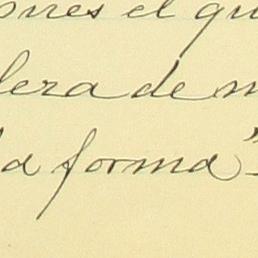 ones el qu
lera de m
la forma"-